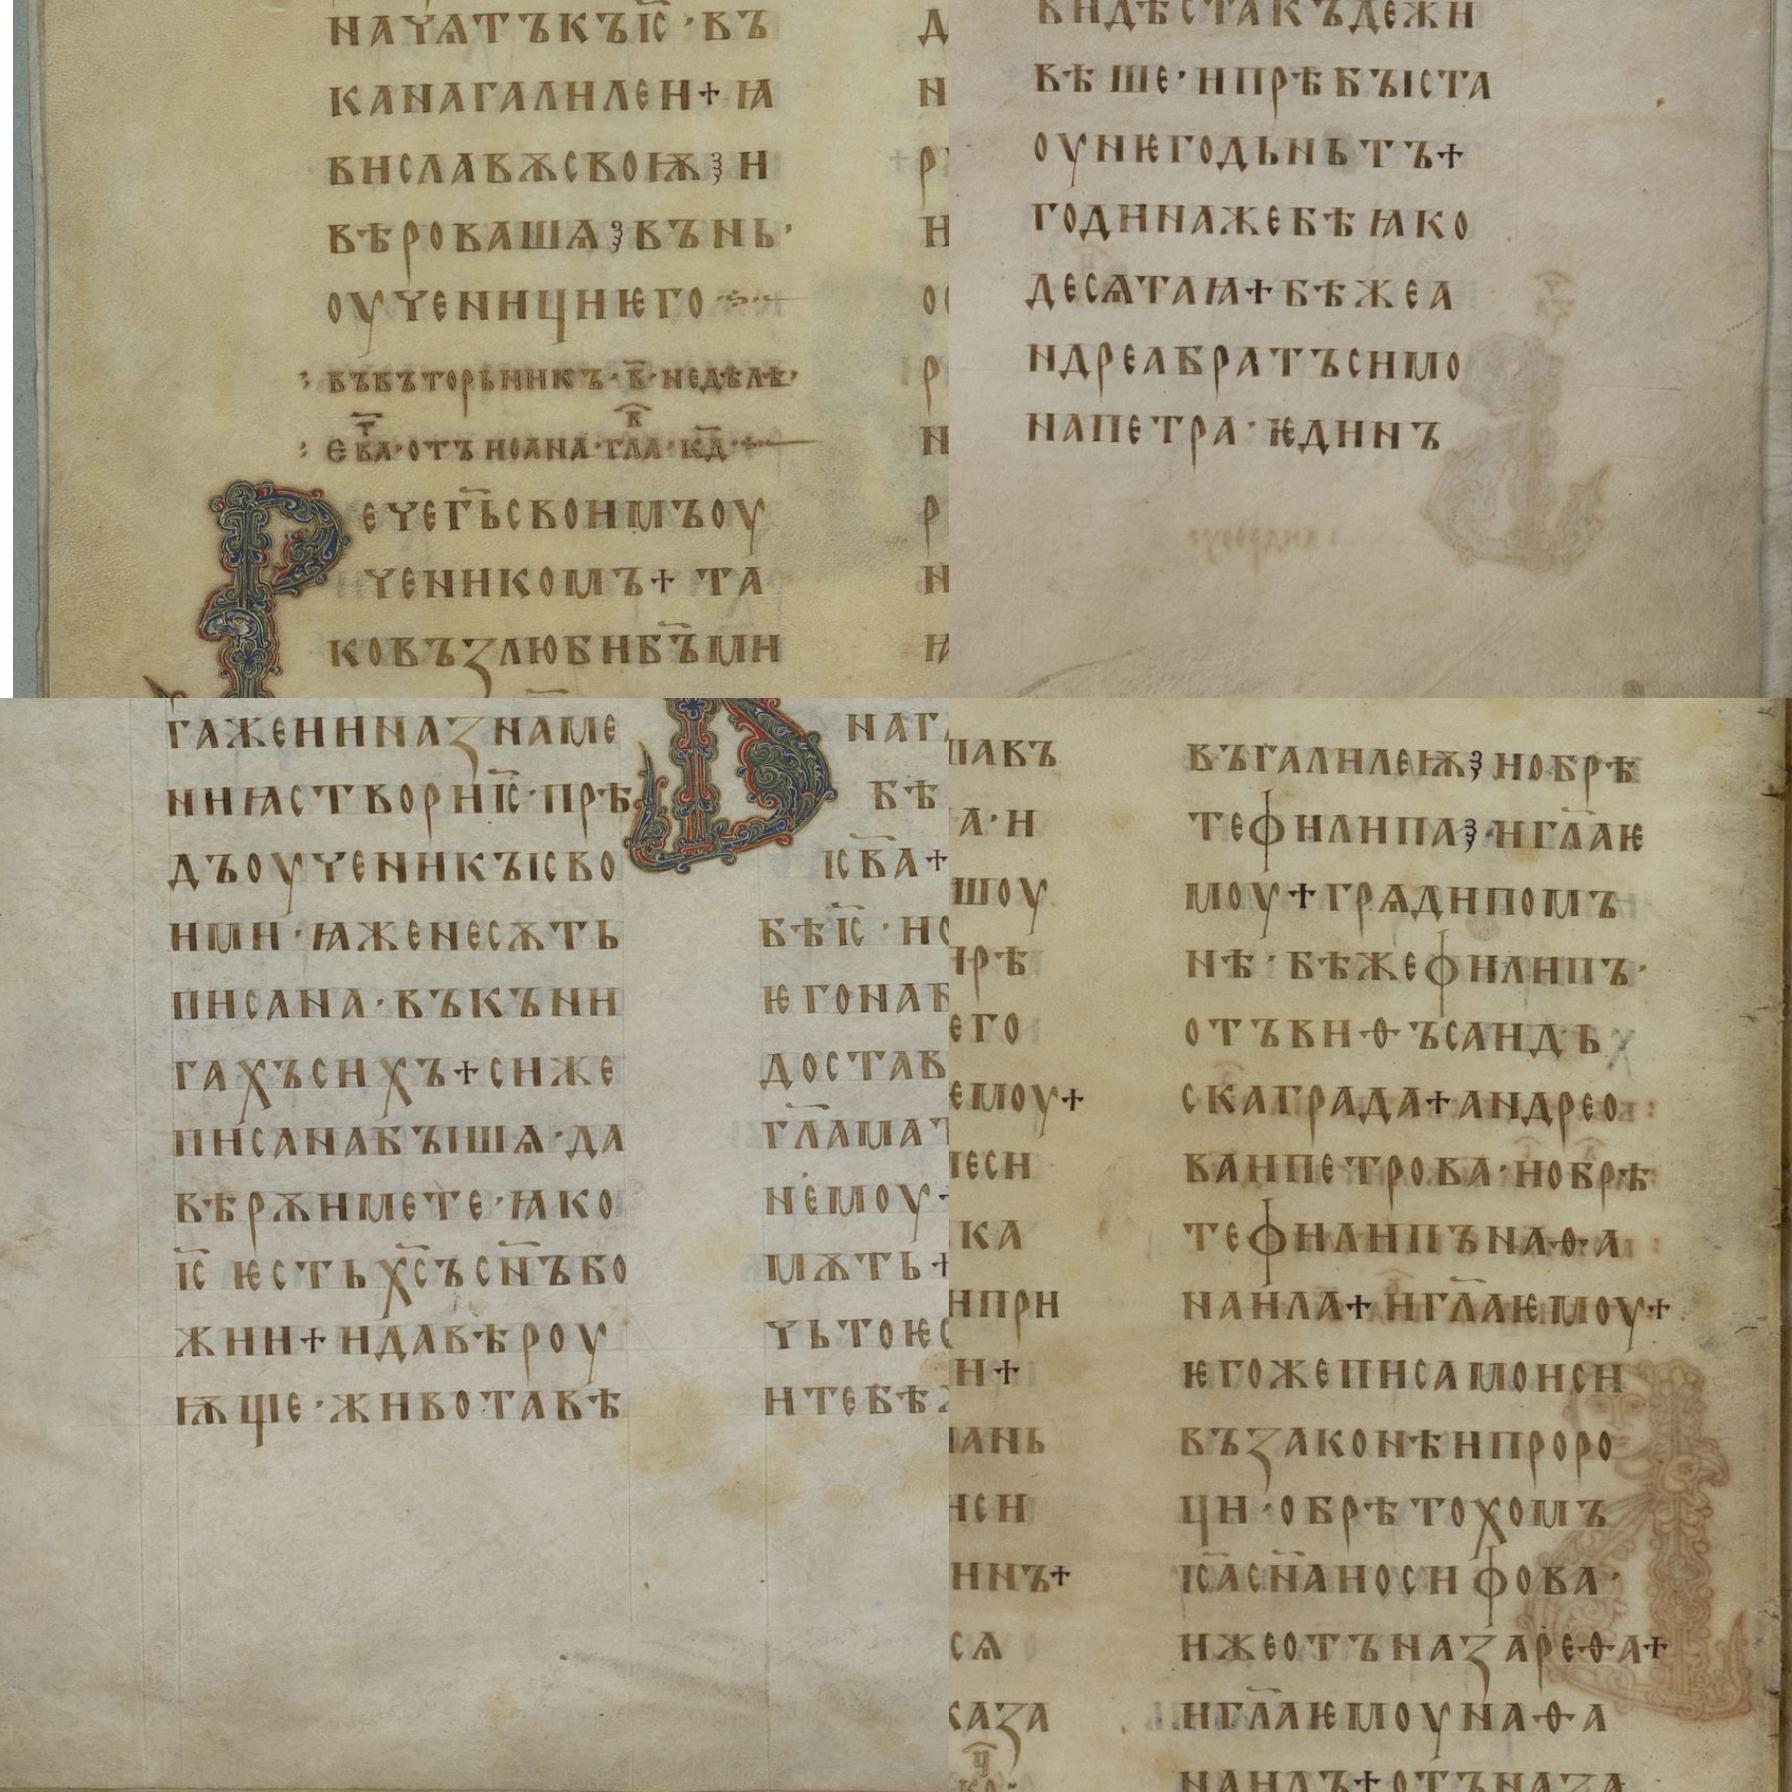 НАЧѦТЪКЪІС҃·ВЪ
КАНАГАЛИЛЕИ+Ꙗ
ВИСЛАВѪСВОѬ꙳И
ВѢРОВАШѦ꙳ВЪНЬ·
ОУЧЕНИЦИѤГО
ВЪВЪТОРЬНИКЪ·В҃·НЕДѢЛѢ·
ЕВА·ОТЪИОАНА·ГЛА·КД·
РЕЧЕГ҃ЬСВОИМЪОУ
ЧЕНИКОМЪ+ТА
КОВЪЗЛЮБИБ҃ЪМИ
ВИДѢСТАКЪДЕЖИ
ВѢШЕ·ИПРѢБЪІСТА
ОУНѤГОДЬНЬТЪ+
ГОДИНАЖЕБѢꙖКО
ДЕСѦТАꙖ+БѢЖЕА
НДРЕАБРАТЪСИМО
НАПЕТРА·ѤДИНЪ
ГАЖЕИИНАЗНАМЕ
НИꙖСТВОРИІС҃·ПРѢ
ДЪОУЧЕНИКЪІСВО
ИМИ·ꙖЖЕНЕСѪТЬ
ПИСАНА·ВЪКЪНИ
ГАХЪСИХЪ+СИЖЕ
ПИСАНАБЪІШѦ·ДА
ВѢРѪИМЕТЕ·ꙖКО
ІС҃ѤСТЬХ҃СЪС҃НЪБО
ЖИИ+ИДАВѢРОУ
ѬЩЕ·ЖИВОТАВѢ
НАГ
БѢ
ІСВА+
БѢІС҃·НО
ѤГОНАБ
ДОСТАВ
ГЛ҃АМАТ
НЕМОУ
МѪТЬ+
ЧЬТОѤС
ИТЕБѢ
ПАВЪ
А·И
ШОУ
ПРѢ
ЕГО
ЕМОУ+
ЕСИ
КА
ИПРИ
И+
АНЬ
ИСИ
ИНЪ+
СѦ
КАЗА
ВЪГАЛИЛЕѬ꙳ИОБРѢ
ТЕФИЛИПА꙳·ИГЛ҃АѤ
МОУ+ГРѦДИПОМЪ
НѢ·БѢЖЕФИЛИПЪ·
ОТЪВИѲЪСАИДЬ
СКАГРАДА+АНДРЕО
ВАИПЕТРОВА·ИОБРѢ
ТЕФИЛИПЪНАѲА
НАИЛА+ИГЛ҃АѤМОУ+
ѤГОЖЕПИСАМОИСИ
ВЪЗАКОНѢИПРОРО
ЦИ·ОБРѢТОХОМЪ
ІС҃АС҃НАИОСИФОВА·
ИЖЕОТЪНАЗАРЕѲА+
ИГЛ҃АѤМОУНАѲА
НАИЛЪ+ОТЪНАЗА